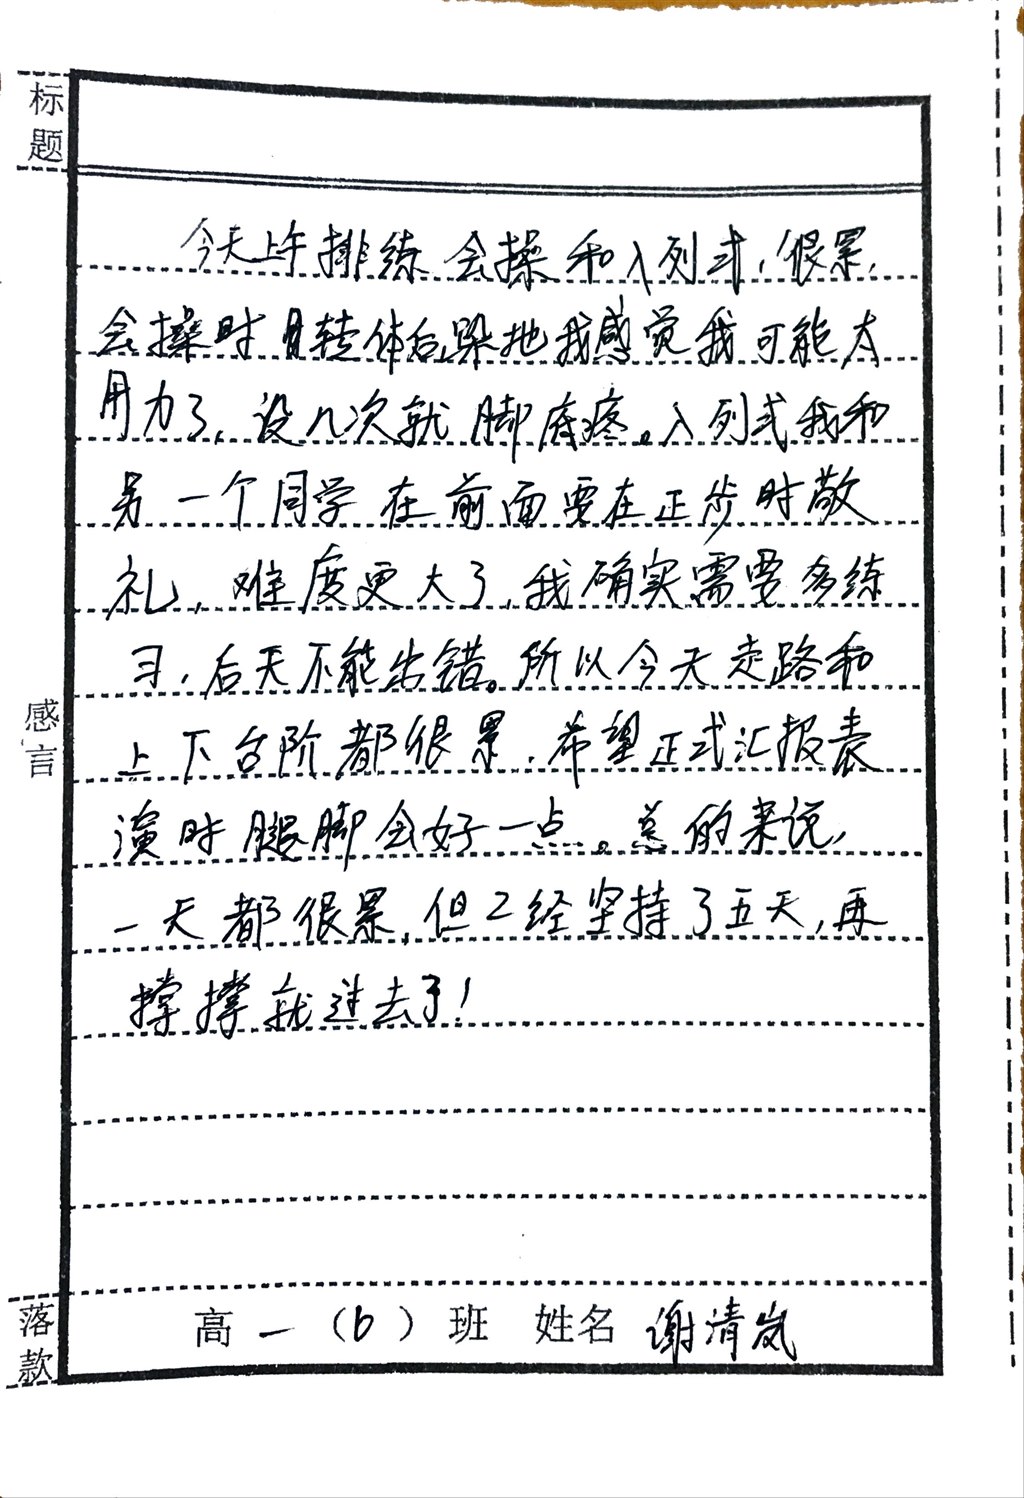 标题
今天上午排练会操和入列式，很累，
会操时转体后跺地我感觉我可能太
用力了，没几次就脚底疼。入列式我和
另一个同学在前面要在正步时敬
礼，难度更大了，我确实需要多练
习，后天不能出错。所以今天走路和
上下台阶都很累，希望正式汇报表
演时腿脚会好一点。总的来说，
一天都很累，但已经坚持了五天，再
撑撑就过去了！
感言
落款
高一（6）班 姓名 谢清岚